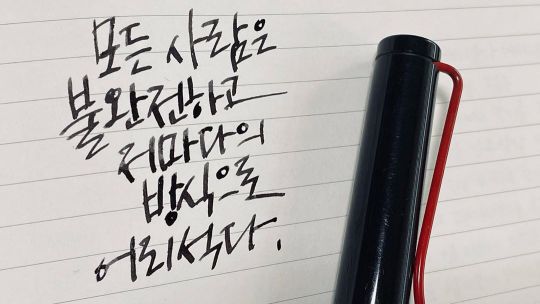 모든 사람은
불완전하고
저마다의
방식으로
어리석다.